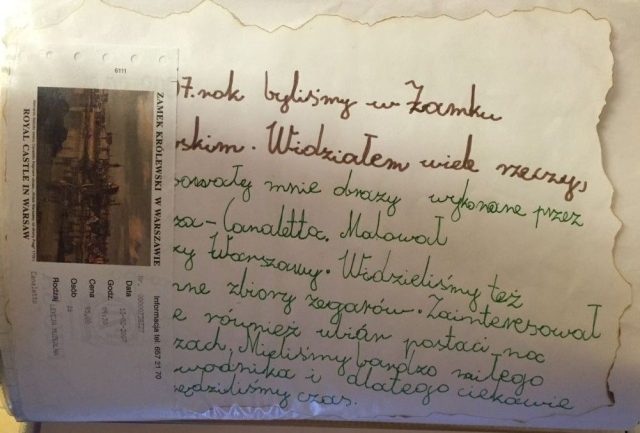 6111
ZAMEK KRÓLEWSKI W WARSZAWIE
ROYAL CASTLE IN WARSAW
Informacja tel. 657 21 70
Nr.
Data
Godz.
Cena
Osób
Rodzaj
Canaletto
07.rok byliśmy w Zamku
wskim. Widziałem wiele rzeczy,
sowały mnie obrazy wykonane przez
za-Canaletta. Malował
zy Warszawy. Widzieliśmy też
ne zbiory zegarów. Zainteresował
e również ubiór postaci na
zach. Mieliśmy bardzo miłego
wodnika i dlatego ciekawie
ędziliśmy czas.